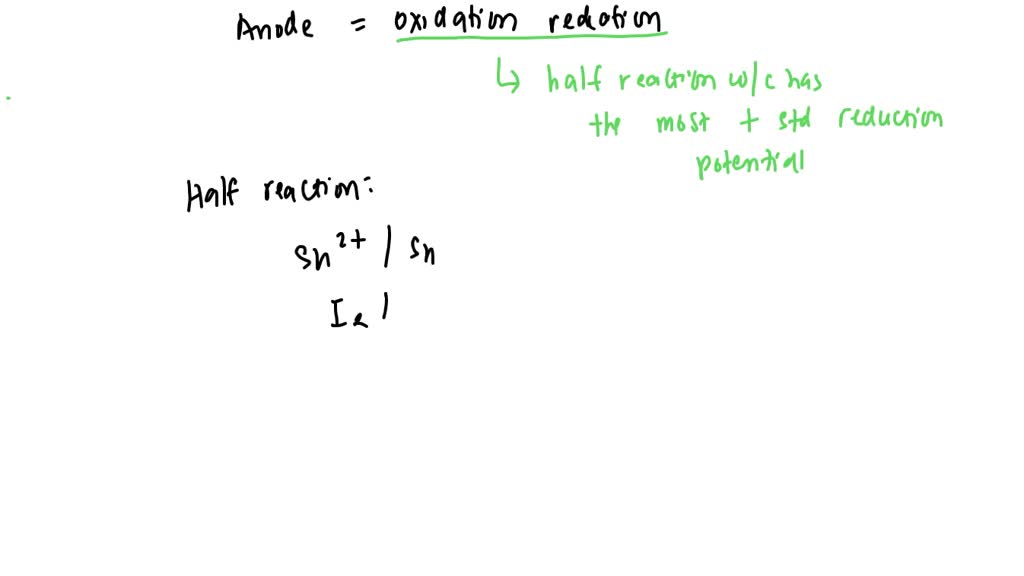 Anode = oxidation reaction
↳ half reaction w/c has
the most + std reduction
potential
Half reaction:
Sn²⁺ | Sn
I₂ |